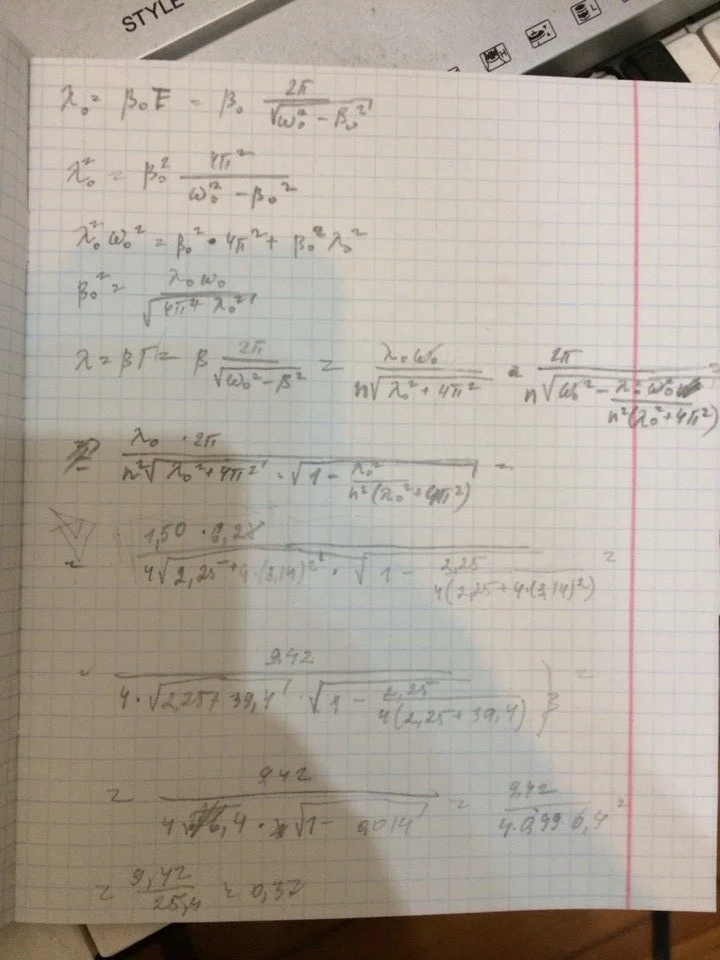 STYLE
λ₀ = β₀T = β₀ 2π/√(ω₀² − β₀²)
λ₀² = β₀² 4π²/(ω₀² − β₀²)
λ₀²ω₀² = β₀² · 4π² + β₀²λ₀²
β₀² = λ₀ω₀/√(4π² + λ₀²)
λ = βT = β 2π/√(ω₀² − β²) = λ₀ω₀/(n√(λ₀² + 4π²)) · 2π/(n√(ω₀² − λ₀²ω₀²/(n²(λ₀² + 4π²)))) =
= λ₀ · 2π/(n²√(λ₀² + 4π²) · √(1 − λ₀²/(n²(λ₀² + 4π²)))) =
= 1,50 · 6,28/(4√(2,25 + 4·(3,14)²) · √(1 − 2,25/(4(2,25 + 4·(3,14)²)))) =
- 9,42/(4 · √(2,25 + 39,4) · √(1 − 2,25/(4(2,25 + 39,4)))) =
= 9,42/(4 6,4 · √(1 − 0,014)) = 9,42/(4·0,99 6,4) =
= 9,42/25,4 = 0,37